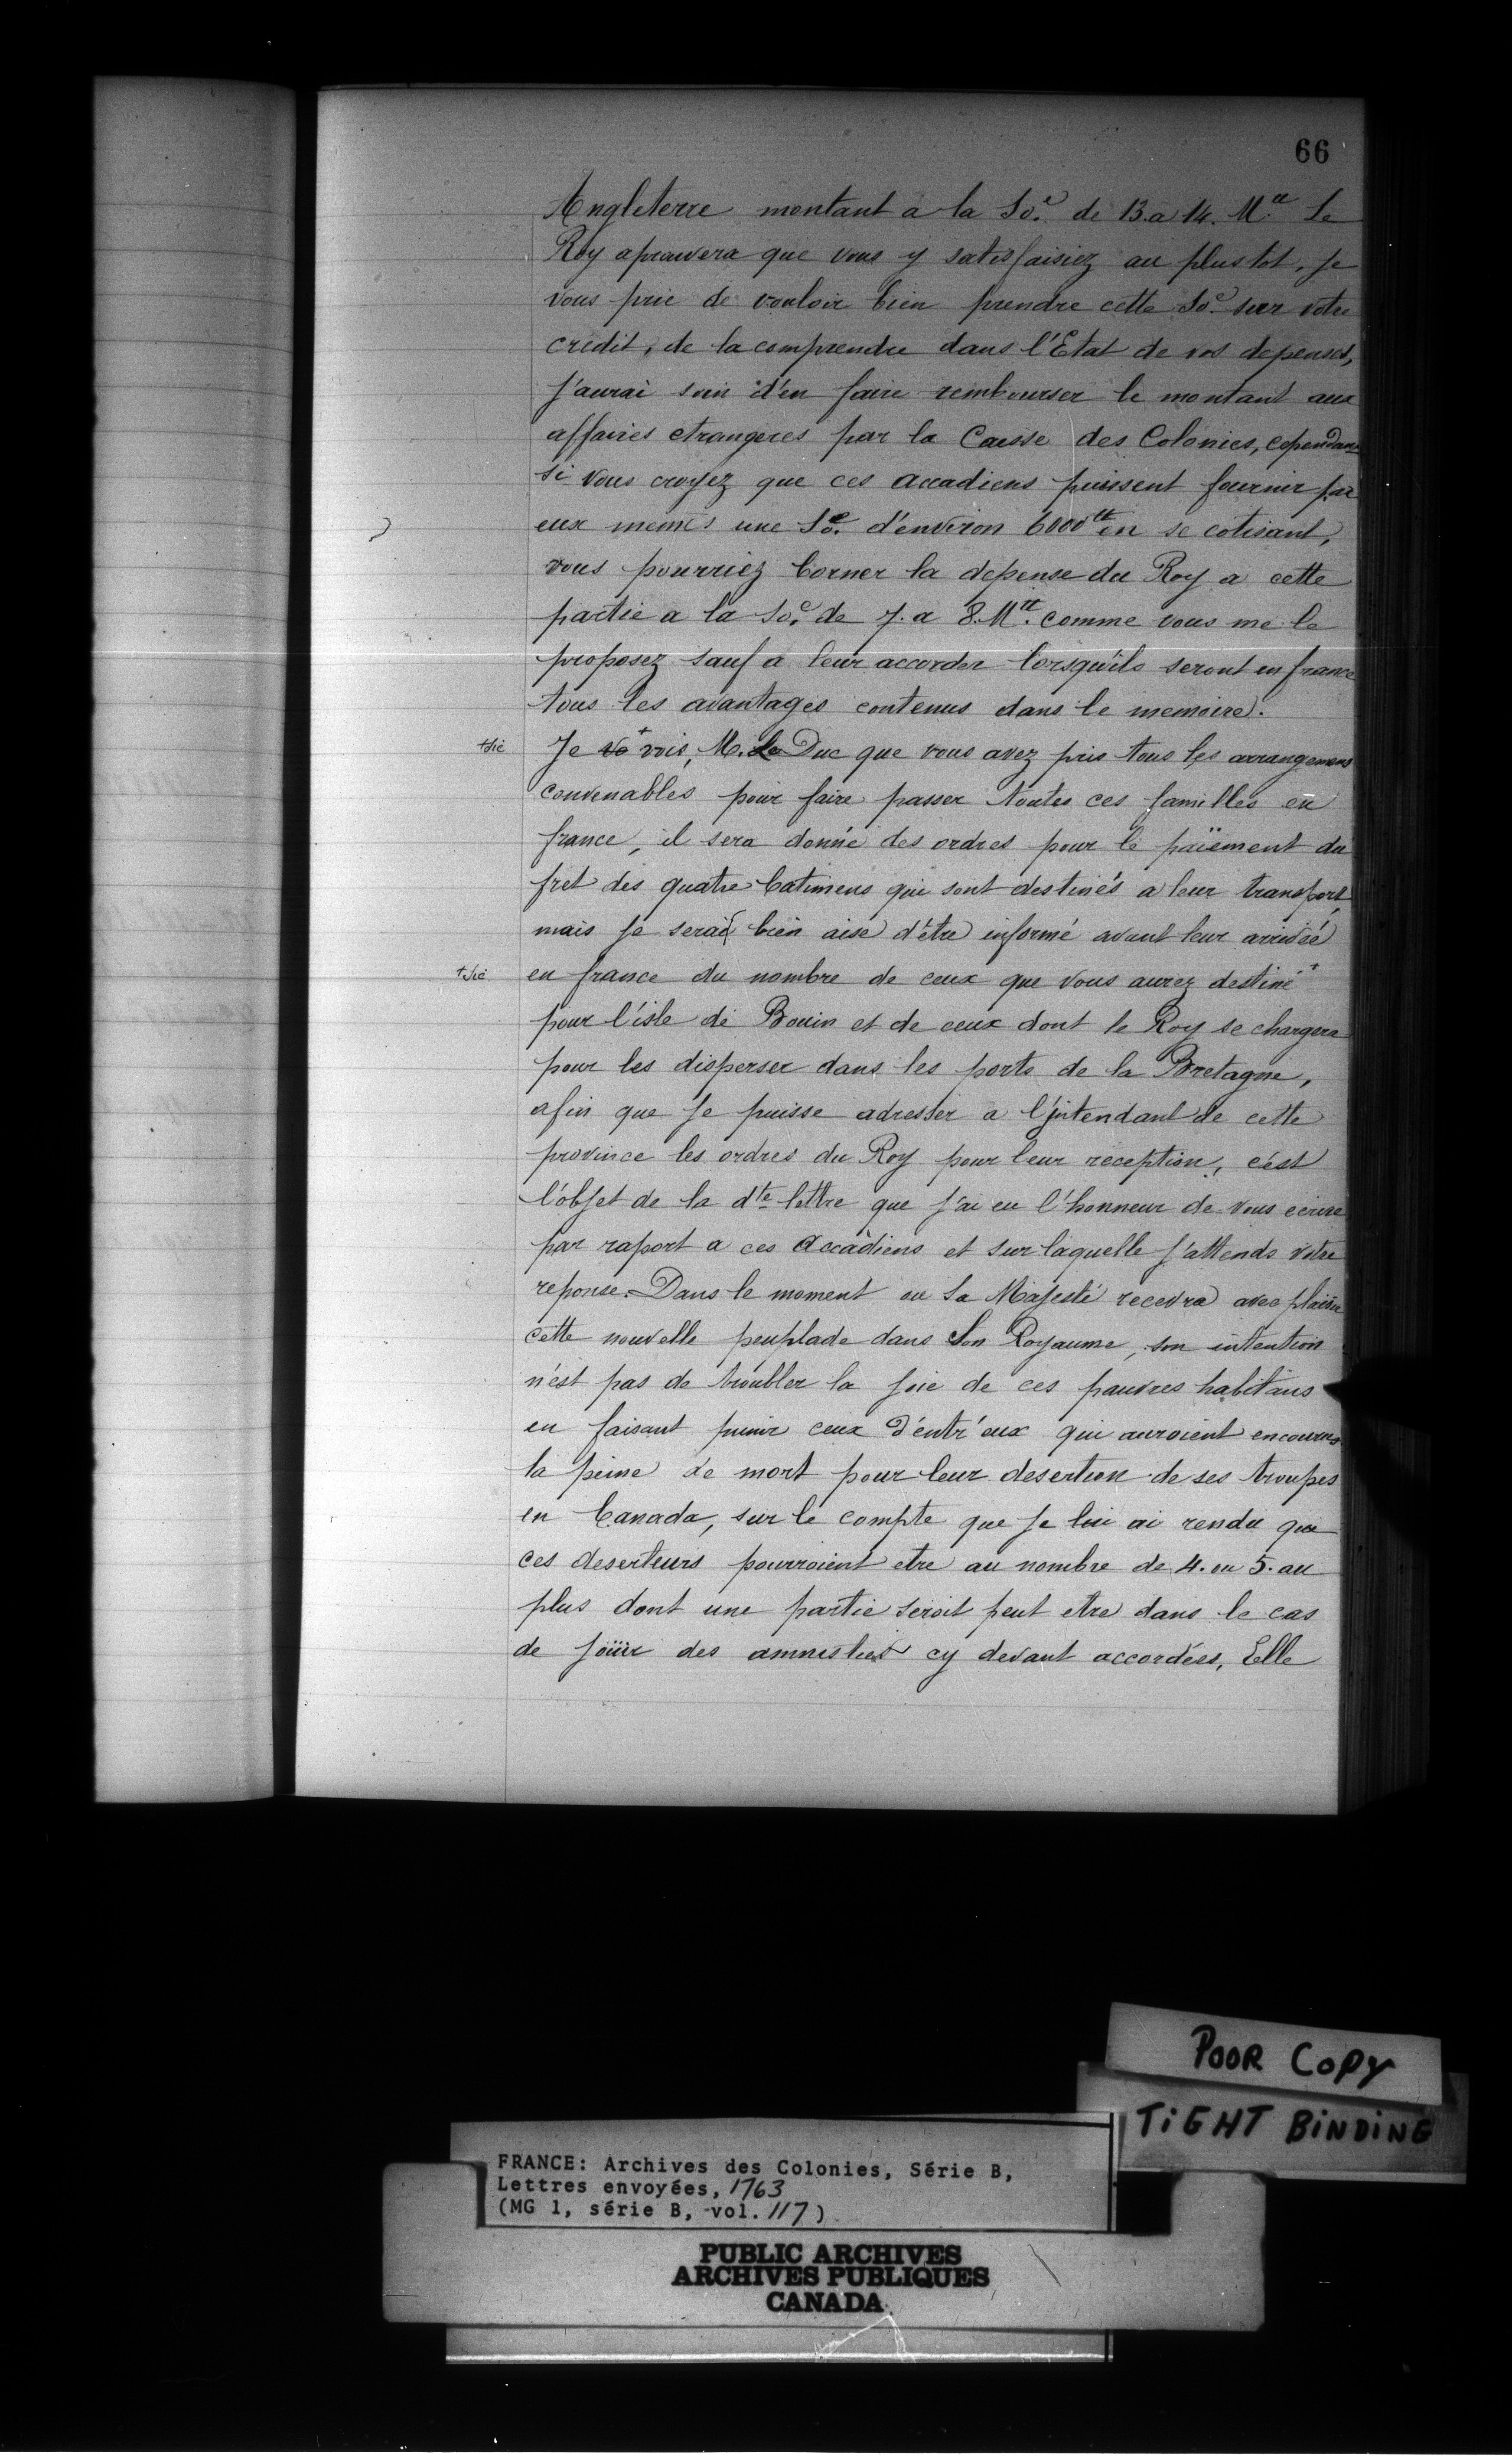 66
Angleterre montant a la So.e de 13. a 14. M.tt Le
Roy aprouvera que vous y satisfaisiez au plustot, je
vous prie de vouloir bien prendre cette So.e sur votre
crédit, de la comprendre dans l'Etat de vos depenses,
j'aurai soin d'en faire rembourser le montant aux
affaires etrangeres par la Caisse des Colonies, cependant
si vous croyez que ces accadiens puissent fournir par
eux memes une So.e d'environ 6000tt en se cotisant,
vous pourriez borner la depense du Roy a cette
partie a la So.e de 7. a 8. Mtt. comme vous me le
proposez sauf a leur accorder lorsqu'ils seront en france
tous les avantages contenus dans le memoire.
+sic Je vo+ vois, M. le Duc que vous avez pris tous les arrangemens
convenables pour faire passer toutes ces familles en
france, il sera donné des ordres pour le païement du
fret des quatre batimens qui sont destinés a leur transport,
mais je serai bien aise d'être informé avant leur arrivée
+sic en france du nombre de ceux que vous aurez destiné+
pour l'isle de Bouin et de ceux dont le Roy se chargera
pour les disperser dans les ports de la Bretagne,
afin que je puisse adresser a l'jntendant de cette
province les ordres du Roy pour leur reception, c'est
l'objet de la dte lettre que j'ai eu l'honneur de vous ecrire
par raport a ces accadiens et sur laquelle j'attends votre
reponse. Dans le moment ou Sa Majesté recevra avec plaisir
cette nouvelle peuplade dans Son Royaume, son intention
n'est pas de troubler la joie de ces pauvres habitans
en faisant punir ceux d'entr'eux qui auroient encourus
la peine de mort pour leur desertion de ses troupes
en Canada, sur le compte que je lui ai rendu que
ces deserteurs pourroient etre au nombre de 4. ou 5. au
plus dont une partie seroit peut etre dans le cas
de joüir des amnisties cy devant accordées, Elle
POOR COPY
TIGHT BINDING
FRANCE: Archives des Colonies, Série B,
Lettres envoyées, 1763
(MG 1, série B, vol. 117)
PUBLIC ARCHIVES
ARCHIVES PUBLIQUES
CANADA